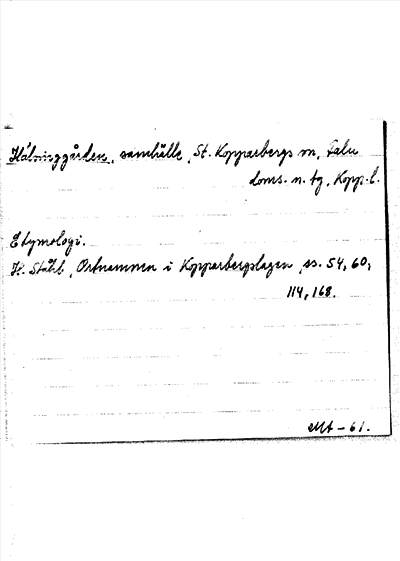 Hälsinggården, samhälle, St. Kopparbergs sn, Falu
doms. n. tg, Kopp. l.
Etymologi.
H. Ståhl, Ortnamnen i Kopparbergslagen, ss. 54, 60,
114, 168.
MA - 61.